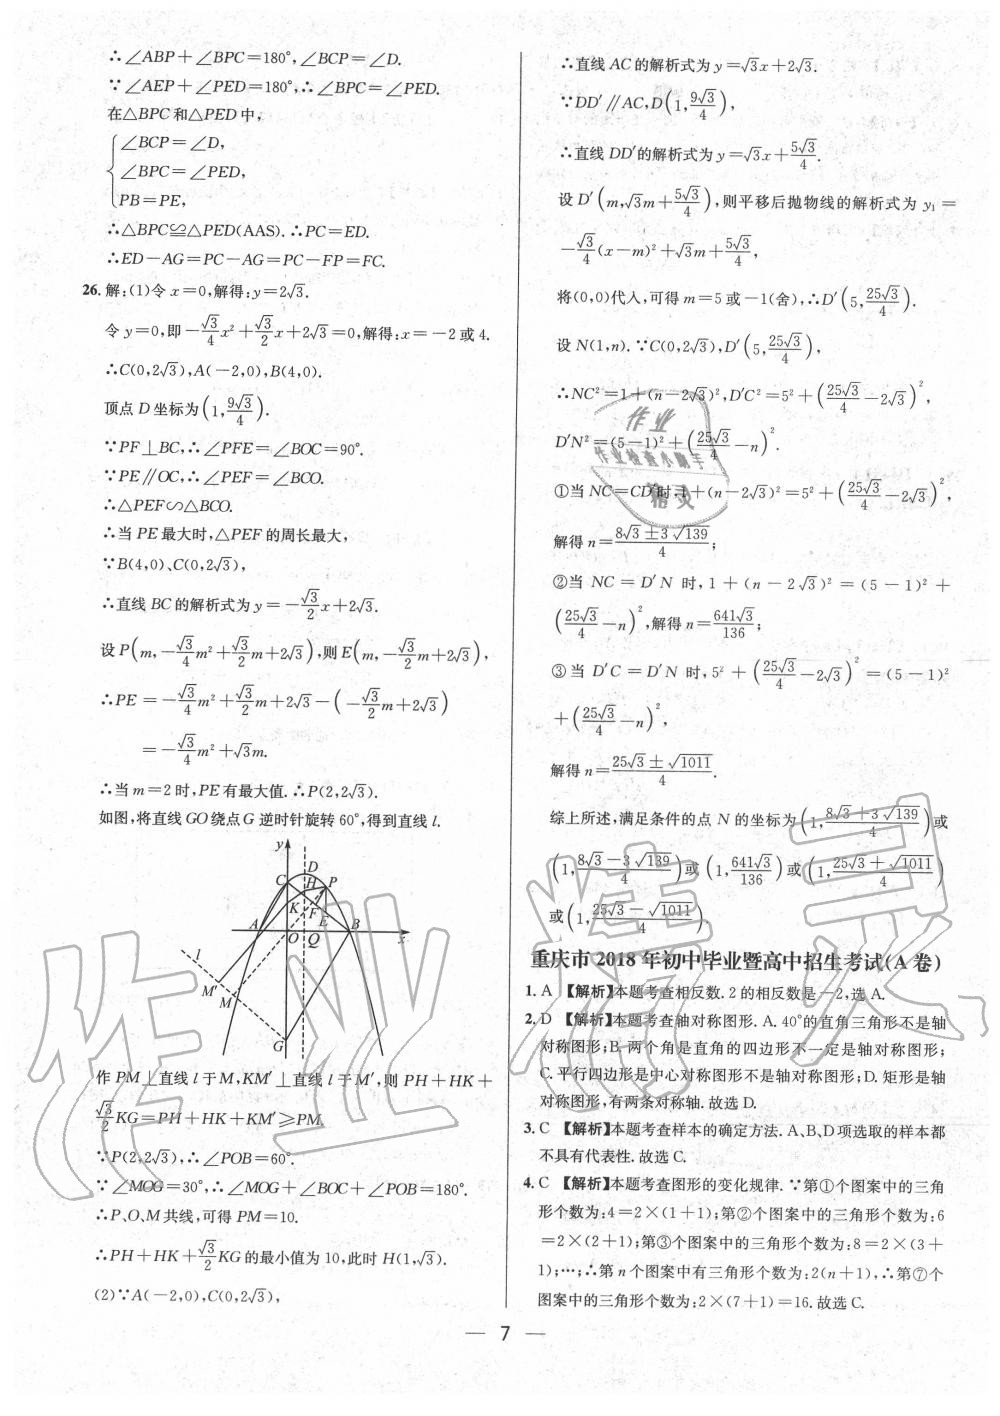 ∴∠ABP+∠BPC=180°,∠BCP=∠D.
∵∠AEP+∠PED=180°,∴∠BPC=∠PED.
在△BPC和△PED中,
∠BCP=∠D,
∠BPC=∠PED,
PB=PE,
∴△BPC≌△PED(AAS).∴PC=ED.
∴ED-AG=PC-AG=PC-FP=FC.
26.解:(1)令x=0,解得:y=2√3.
令y=0,即-√3/4x²+√3/2x+2√3=0,解得:x=-2或4.
∴C(0,2√3),A(-2,0),B(4,0).
顶点D坐标为(1,9√3/4).
∵PF⊥BC,∴∠PFE=∠BOC=90°.
∵PE∥OC,∴∠PEF=∠BCO.
∴△PEF∽△BCO.
∴当PE最大时,△PEF的周长最大,
∵B(4,0)、C(0,2√3),
∴直线BC的解析式为y=-√3/2x+2√3.
设P(m,-√3/4m²+√3/2m+2√3),则E(m,-√3/2m+2√3),
∴PE=-√3/4m²+√3/2m+2√3-(-√3/2m+2√3)
=-√3/4m²+√3m.
∴当m=2时,PE有最大值.∴P(2,2√3).
如图,将直线GO绕点G逆时针旋转60°,得到直线l.
y
D
C H P
K F
E
A O Q B x
l
M′
M
G
作PM⊥直线l于M,KM′⊥直线l于M′,则PH+HK+
√3/2KG=PH+HK+KM′≥PM
∵P(2,2√3),∴∠POB=60°.
∵∠MOG=30°,∴∠MOG+∠BOC+∠POB=180°.
∴P、O、M共线,可得PM=10.
∴PH+HK+√3/2KG的最小值为10,此时H(1,√3).
(2)∵A(-2,0),C(0,2√3),
∴直线AC的解析式为y=√3x+2√3.
∵DD′∥AC,D(1,9√3/4),
∴直线DD′的解析式为y=√3x+5√3/4.
设D′(m,√3m+5√3/4),则平移后抛物线的解析式为y₁=
-√3/4(x-m)²+√3m+5√3/4,
将(0,0)代入,可得m=5或-1(舍),∴D′(5,25√3/4).
设N(1,n).∵C(0,2√3),D′(5,25√3/4),
∴NC²=1+(n-2√3)²,D′C²=5²+(25√3/4-2√3)²,
D′N²=(5-1)²+(25√3/4-n)².
①当NC=CD′时,1+(n-2√3)²=5²+(25√3/4-2√3)²,
解得n=(8√3±3√139)/4;
②当NC=D′N时,1+(n-2√3)²=(5-1)²+
(25√3/4-n)²,解得n=641√3/136;
③当D′C=D′N时,5²+(25√3/4-2√3)²=(5-1)²
+(25√3/4-n)²,
解得n=(25√3±√1011)/4.
综上所述,满足条件的点N的坐标为(1,(8√3+3√139)/4)或
(1,(8√3-3√139)/4)或(1,641√3/136)或(1,(25√3+√1011)/4)
或(1,(25√3-√1011)/4).
重庆市2018年初中毕业暨高中招生考试(A卷)
1.A 【解析】本题考查相反数.2的相反数是-2,选A.
2.D 【解析】本题考查轴对称图形.A.40°的直角三角形不是轴
对称图形;B.两个角是直角的四边形不一定是轴对称图形;
C.平行四边形是中心对称图形不是轴对称图形;D.矩形是轴
对称图形,有两条对称轴.故选D.
3.C 【解析】本题考查样本的确定方法.A、B、D项选取的样本都
不具有代表性.故选C.
4.C 【解析】本题考查图形的变化规律.∵第①个图案中的三角
形个数为:4=2×(1+1);第②个图案中的三角形个数为:6
=2×(2+1);第③个图案中的三角形个数为:8=2×(3+
1);…;∴第n个图案中有三角形个数为:2(n+1),∴第⑦个
图案中的三角形个数为:2×(7+1)=16.故选C.
— 7 —
作业
作业检查小助手
精灵
作业精灵